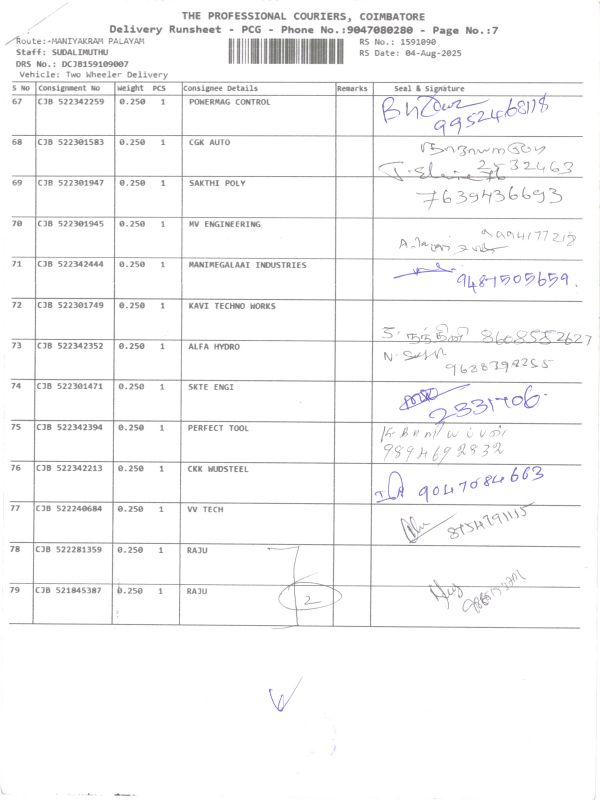 THE PROFESSIONAL COURIERS, COIMBATORE
Delivery Runsheet - PCG - Phone No.:9047080280 - Page No.:7
Route:-MANIYAKRAM PALAYAM RS No.: 1591090
Staff: SUDALIMUTHU RS Date: 04-Aug-2025
DRS No.: DCJB159109007
Vehicle: Two Wheeler Delivery
S No Consignment No Weight PCS Consignee Details Remarks Seal & Signature
67 CJB 522342259 0.250 1 POWERMAG CONTROL
9952468118
68 CJB 522301583 0.250 1 CGK AUTO
2532463
69 CJB 522301947 0.250 1 SAKTHI POLY 7639436693
70 CJB 522301945 0.250 1 MV ENGINEERING
71 CJB 522342444 0.250 1 MANIMEGALAAI INDUSTRIES
9487505659.
72 CJB 522301749 0.250 1 KAVI TECHNO WORKS
S. நந்தினி 8608552627
73 CJB 522342352 0.250 1 ALFA HYDRO
74 CJB 522301471 0.250 1 SKTE ENGI
2331706.
75 CJB 522342394 0.250 1 PERFECT TOOL
9894692832
76 CJB 522342213 0.250 1 CKK WUDSTEEL
9047084663
77 CJB 522240684 0.250 1 VV TECH
78 CJB 522281359 0.250 1 RAJU
79 CJB 521845387 0.250 1 RAJU
2